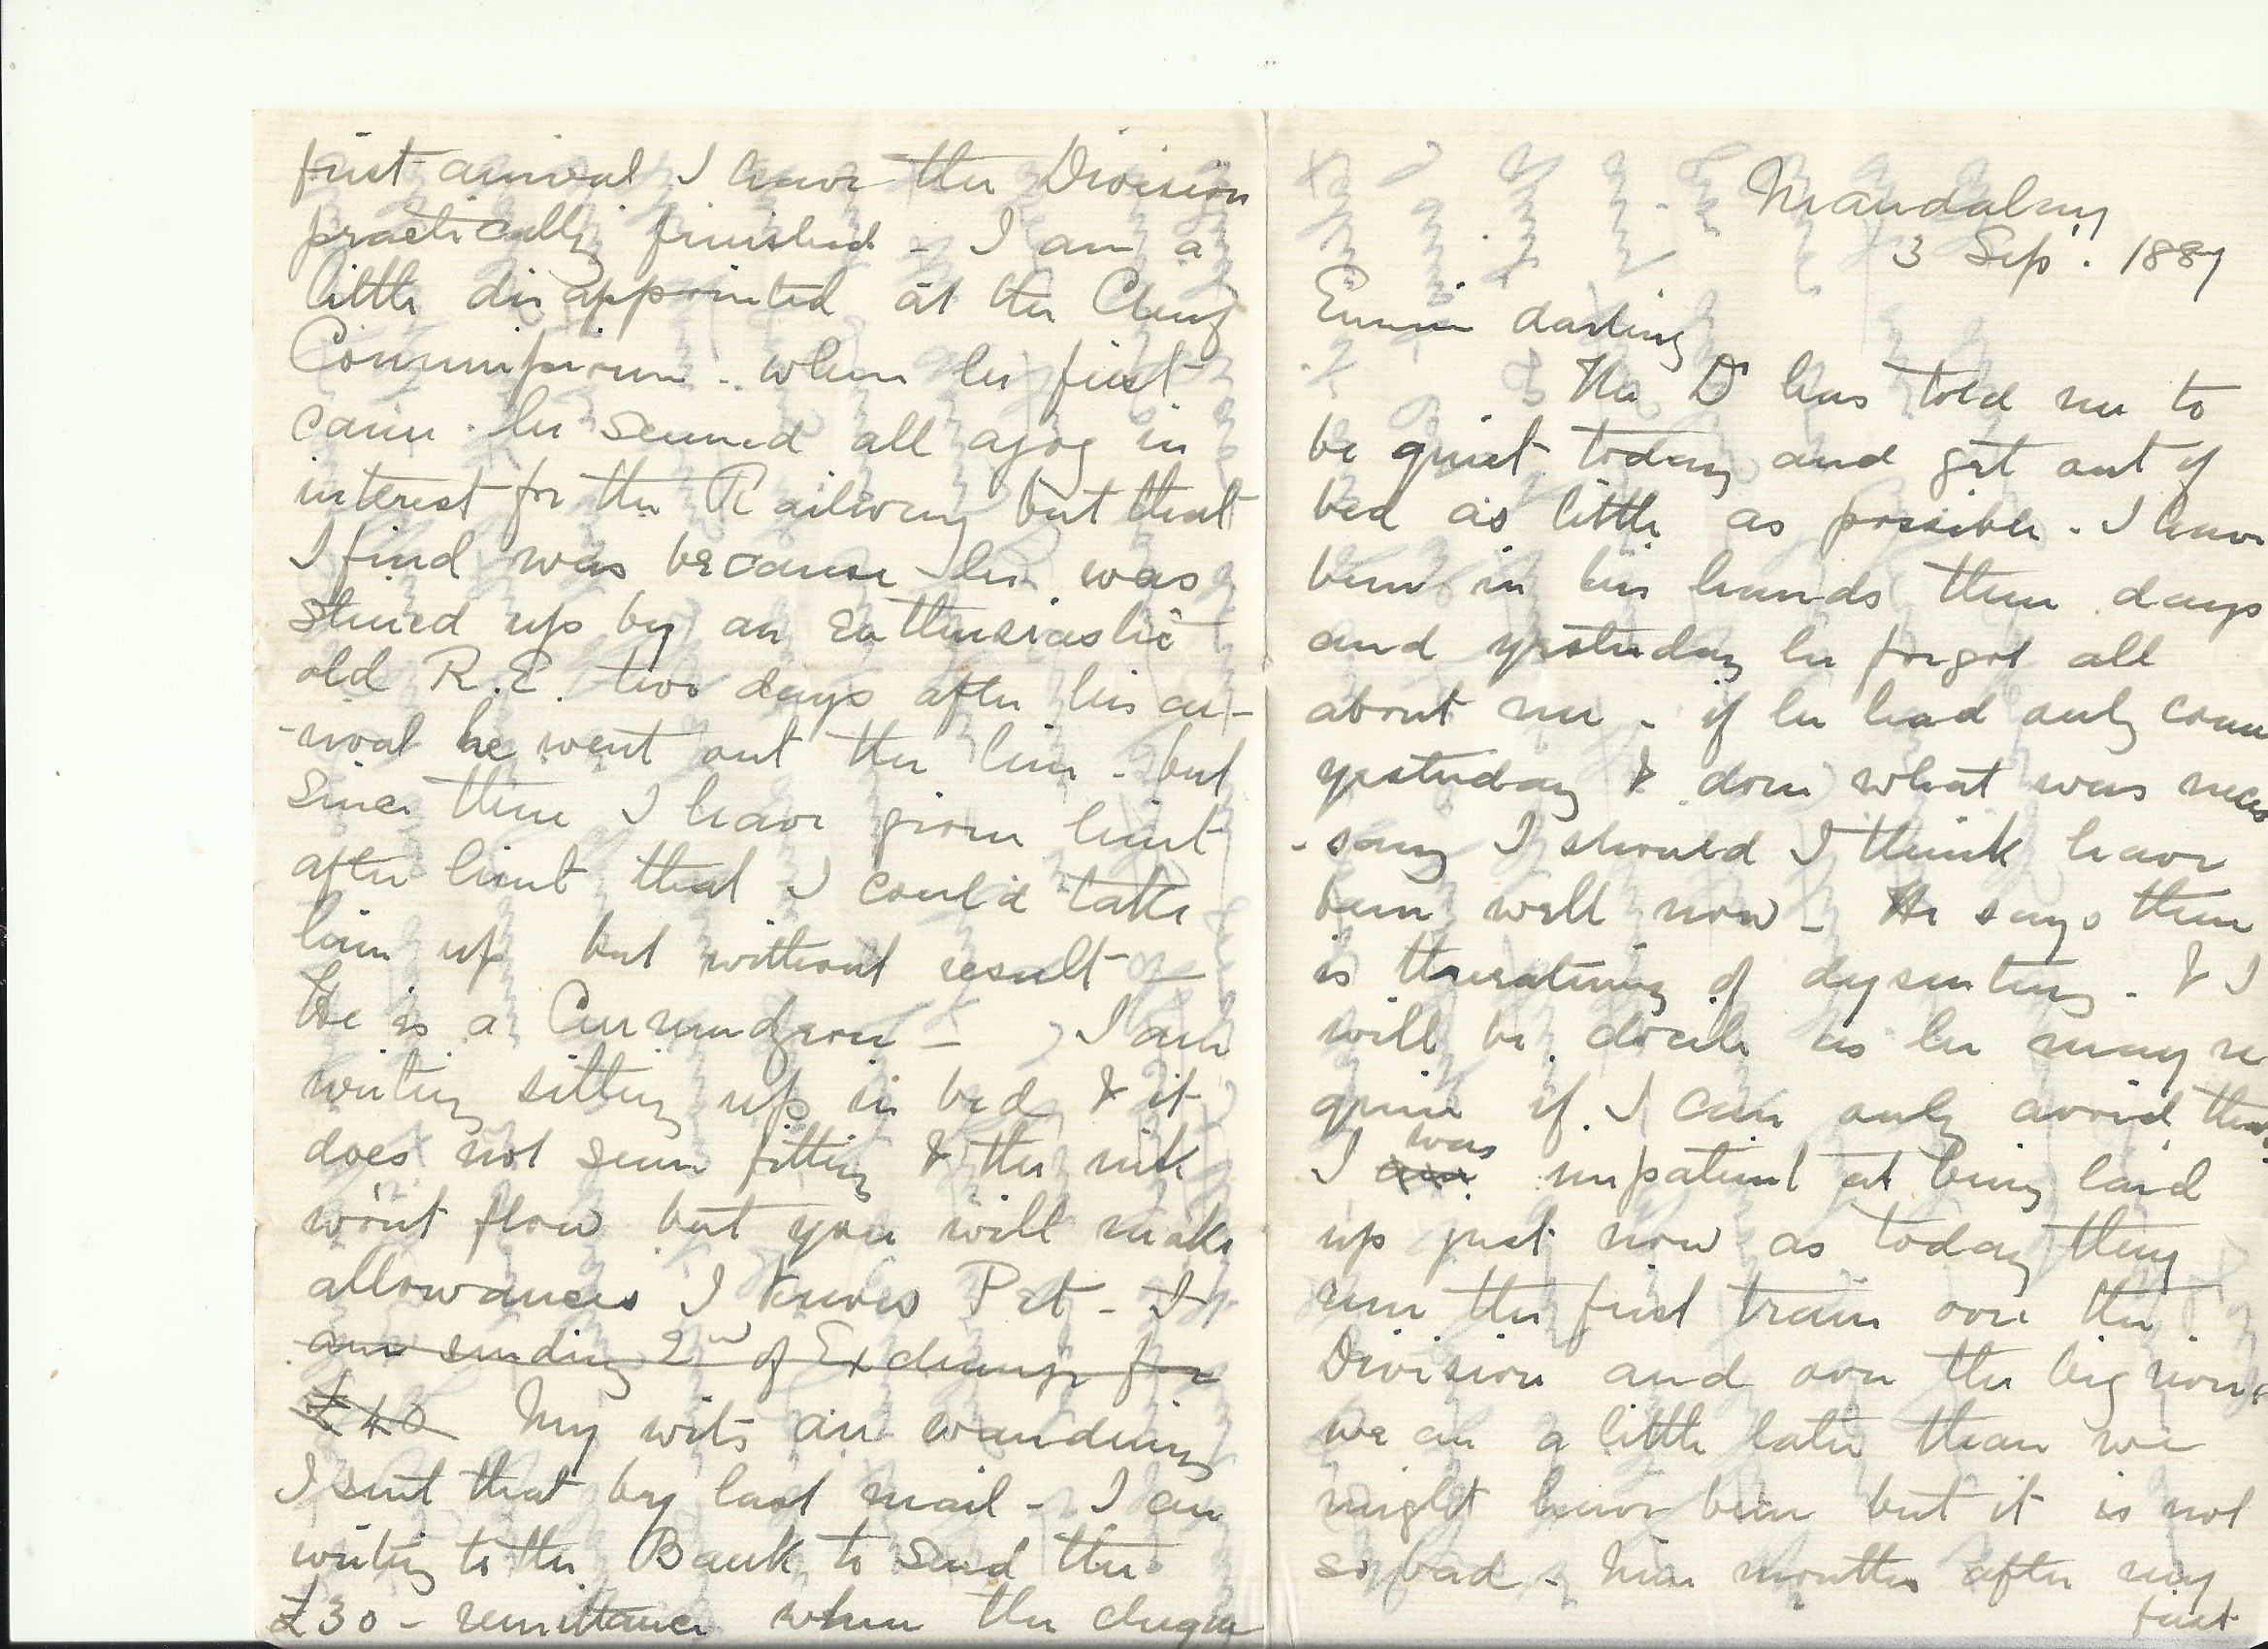 Mandalay
3 Sept. 1887
Emmie darling
The Dr has told me to
be quiet today and get out of
bed as little as possible - I have
been in his hands three days
and yesterday he forgot all
about me - if he had only come
yesterday & done what was neces
-sary I should I think have
been well now - He says there
is threatening of dysentery - & I
will be docile as he may re
quire if I can only avoid that
I am was impatient at being laid
up just now as today they
run the first train over the
Division and over the big
we are a little later than we
might have been but it is not
so bad - Nine months after my
first
first arrival I have the Division
practically finished - I am a
little disappointed at the Chief
Commissioner - when he first
came he seemed all agog in
interest for the Railway but that
I find was because he was
stirred up by an enthusiastic
old R.E. two days after his ar-
-rival he went out the line - but
since then I have given hint
after hint that I could take
him up but without result -
He is a Curmudgeon - I am
writing sitting up in bed & it
does not seem fitting & the ink
wont flow but you will make
allowances I know Pet - I
am sending 2nd of Exchange for
£40 My wits are wandering
I sent that by last mail - I am
writing to the Bank to send the
£30 - remittance when the cheque